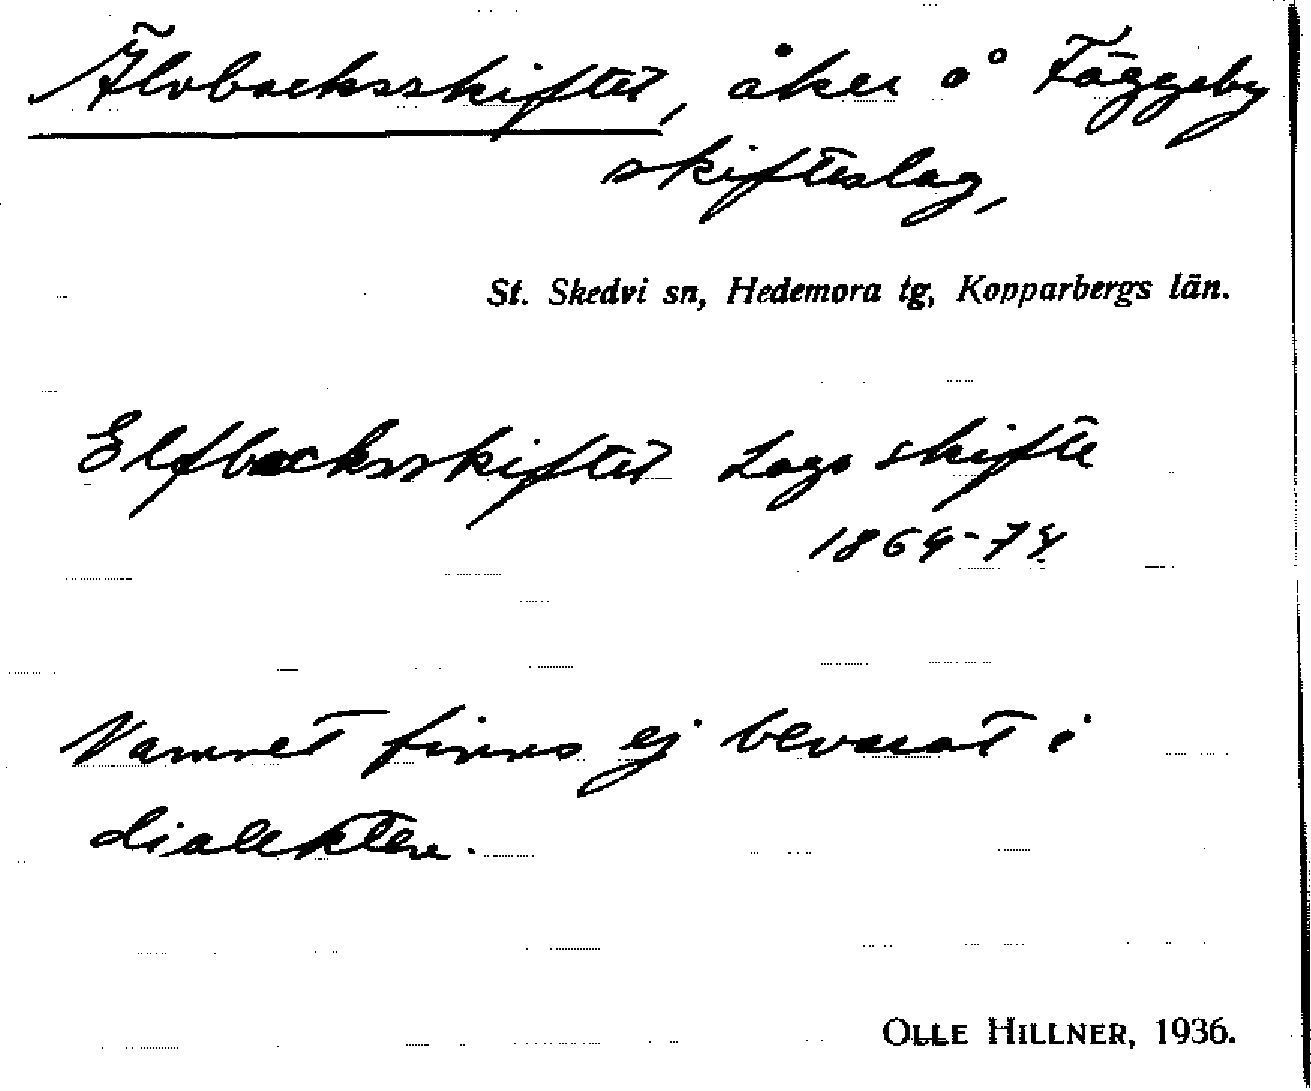 Älvbacksskiftet, åker å Fäggeby
skifteslag,
St. Skedvi sn, Hedemora tg, Kopparbergs län.
Elfbacksskiftet Laga skifte
1864-74
Namnet finns ej bevarat i
dialekten.
OLLE HILLNER, 1936.